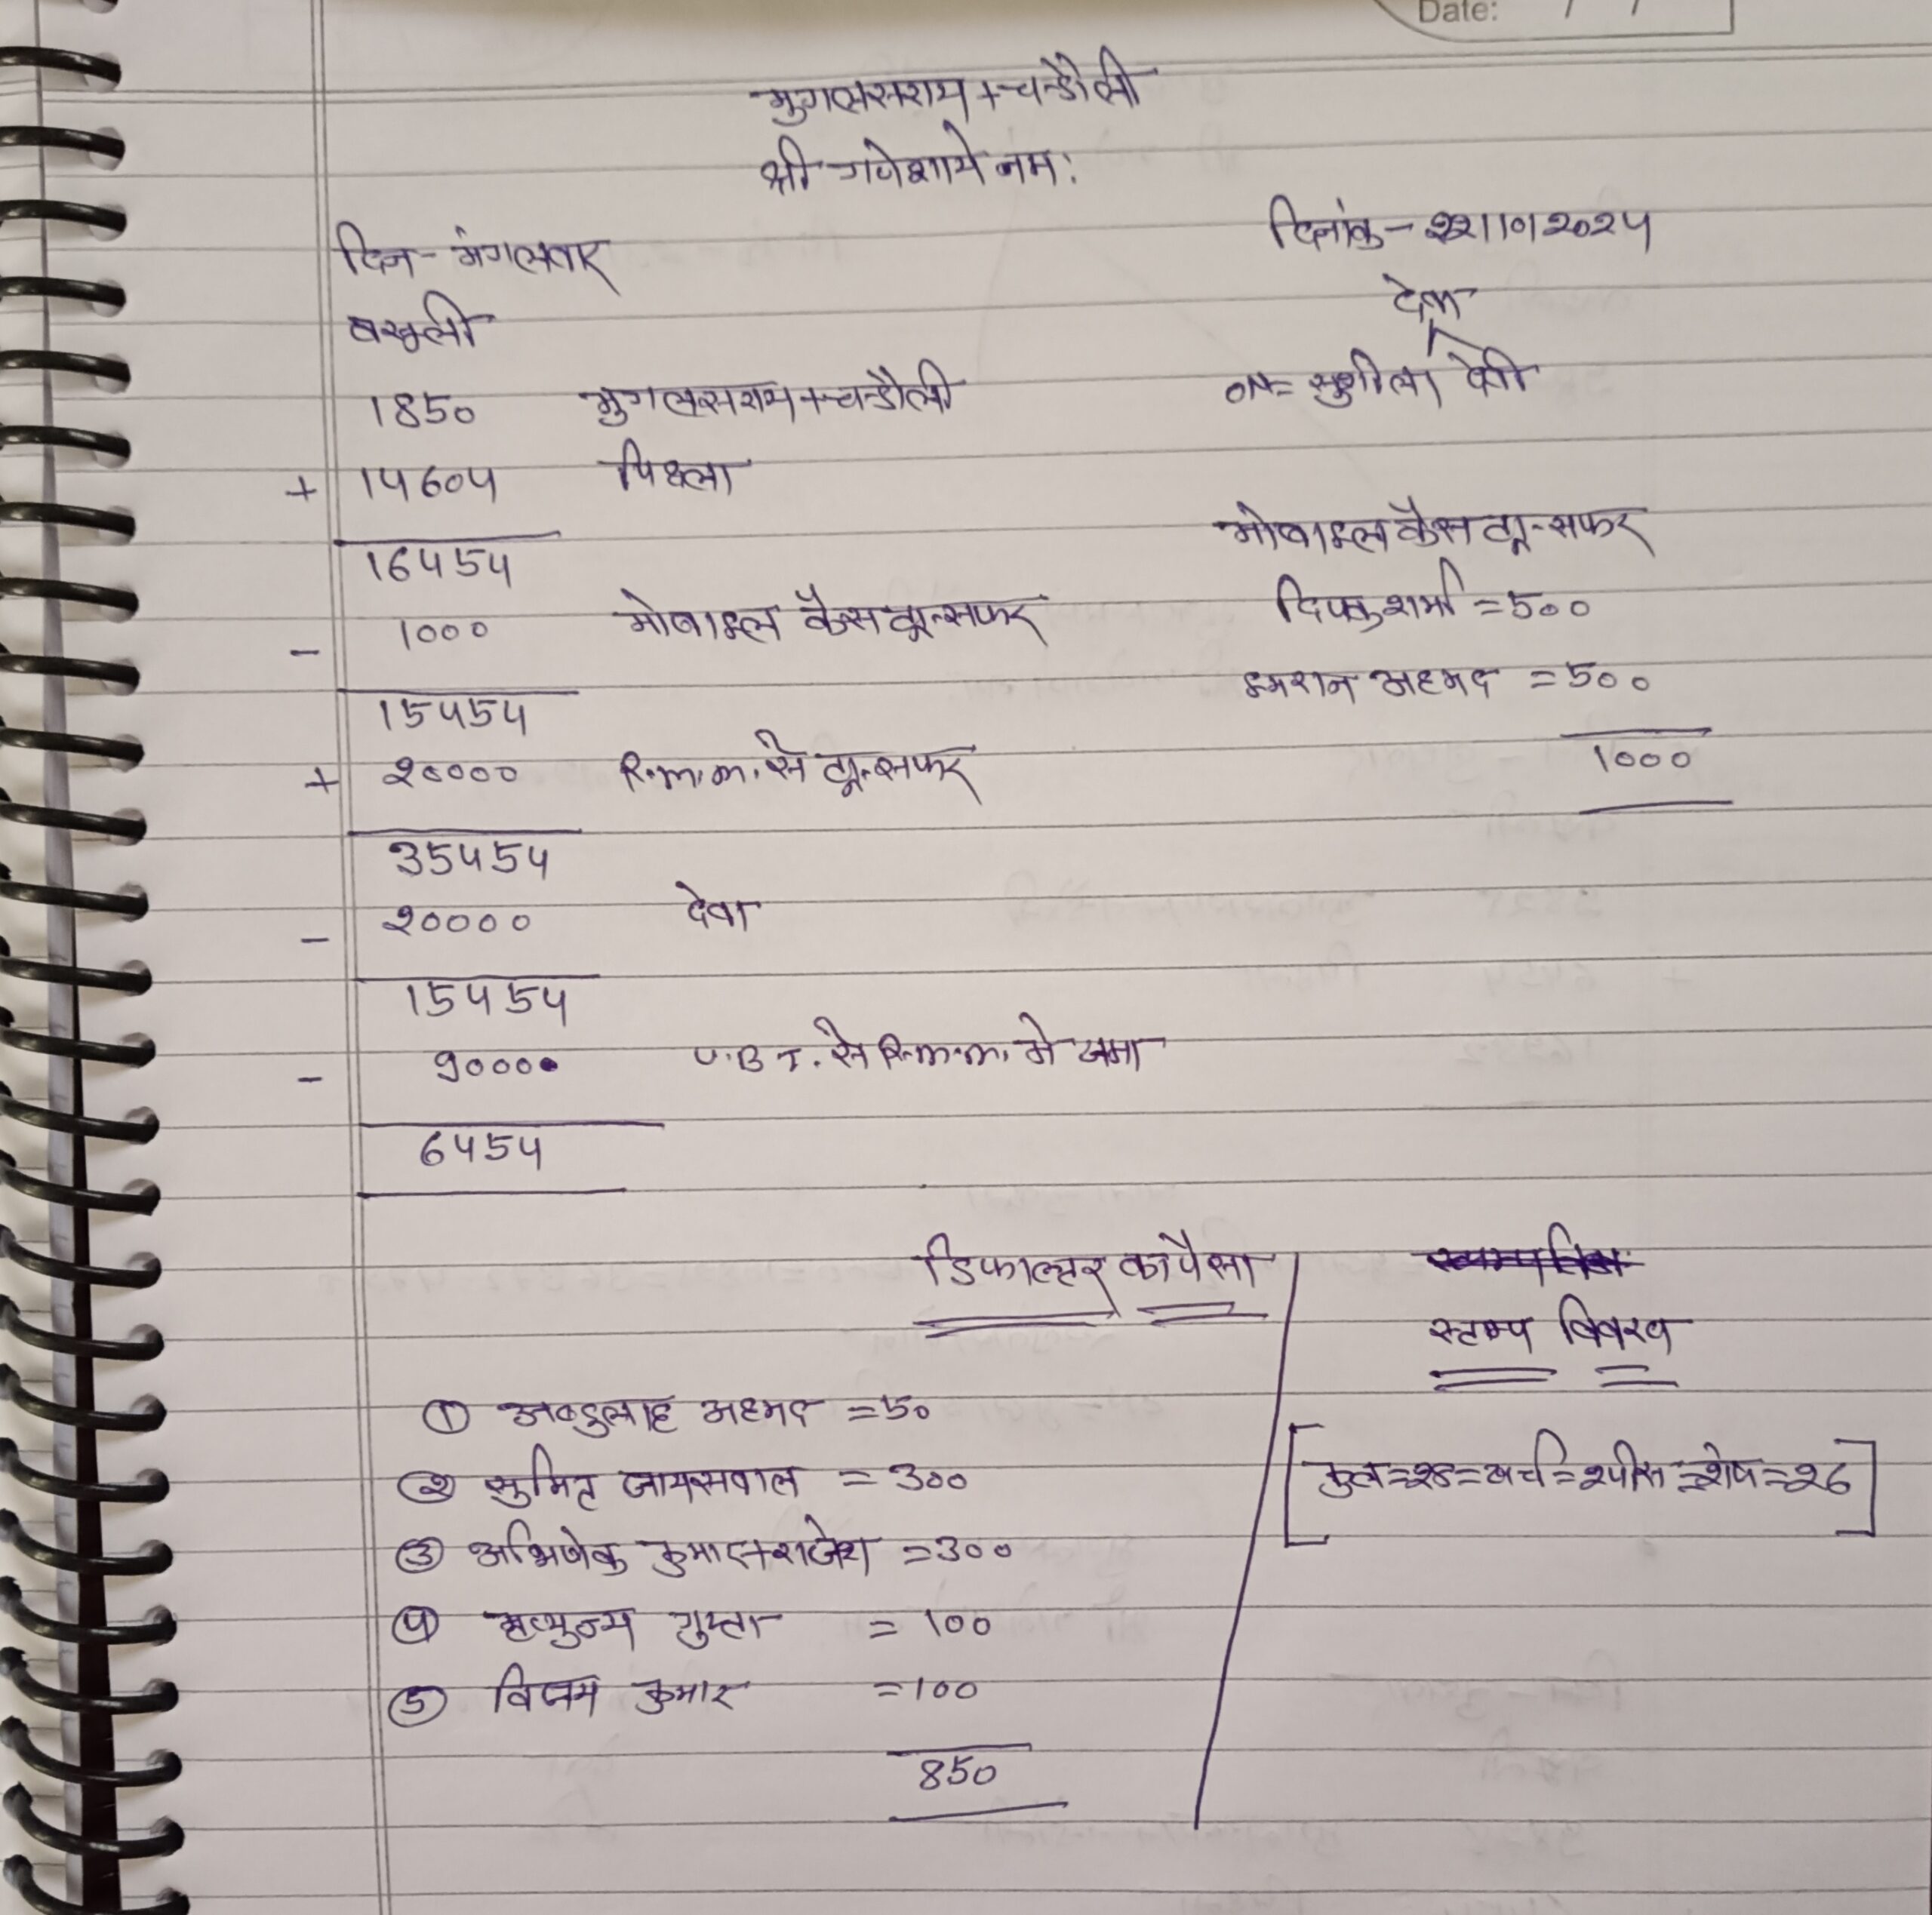 Date: / /
मुगलसराय + चन्डौली
श्री गणेशाये नम:
दिन - मंगलवार
दिनांक - 22/10/2024
वसूली
देवा
1850 मुगलसराय + चन्डौली
ON = सुशीला देवी
+ 14604 पिछला
16454
मोबाइल कैस ट्रान्सफर
- 1000 मोबाइल कैस ट्रान्सफर
दिपक शर्मा = 500
15454
इमरान अहमद = 500
+ 20000 R.m.m. से ट्रान्सफर
1000
35454
- 20000 देवा
15454
- 9000 U.B.I. से R.m.m. मे जमा
6454
डिफाल्टर का पैसा
स्टाम्प विवरण
① अब्दुलाह अहमद = 50
② सुमित जायसवाल = 300
[कुल = 28 = खर्च = 2 पीस = शेष = 26]
③ अभिषेक कुमार + राजेश = 300
④ मृत्युन्जय गुप्ता = 100
⑤ विजय कुमार = 100
850